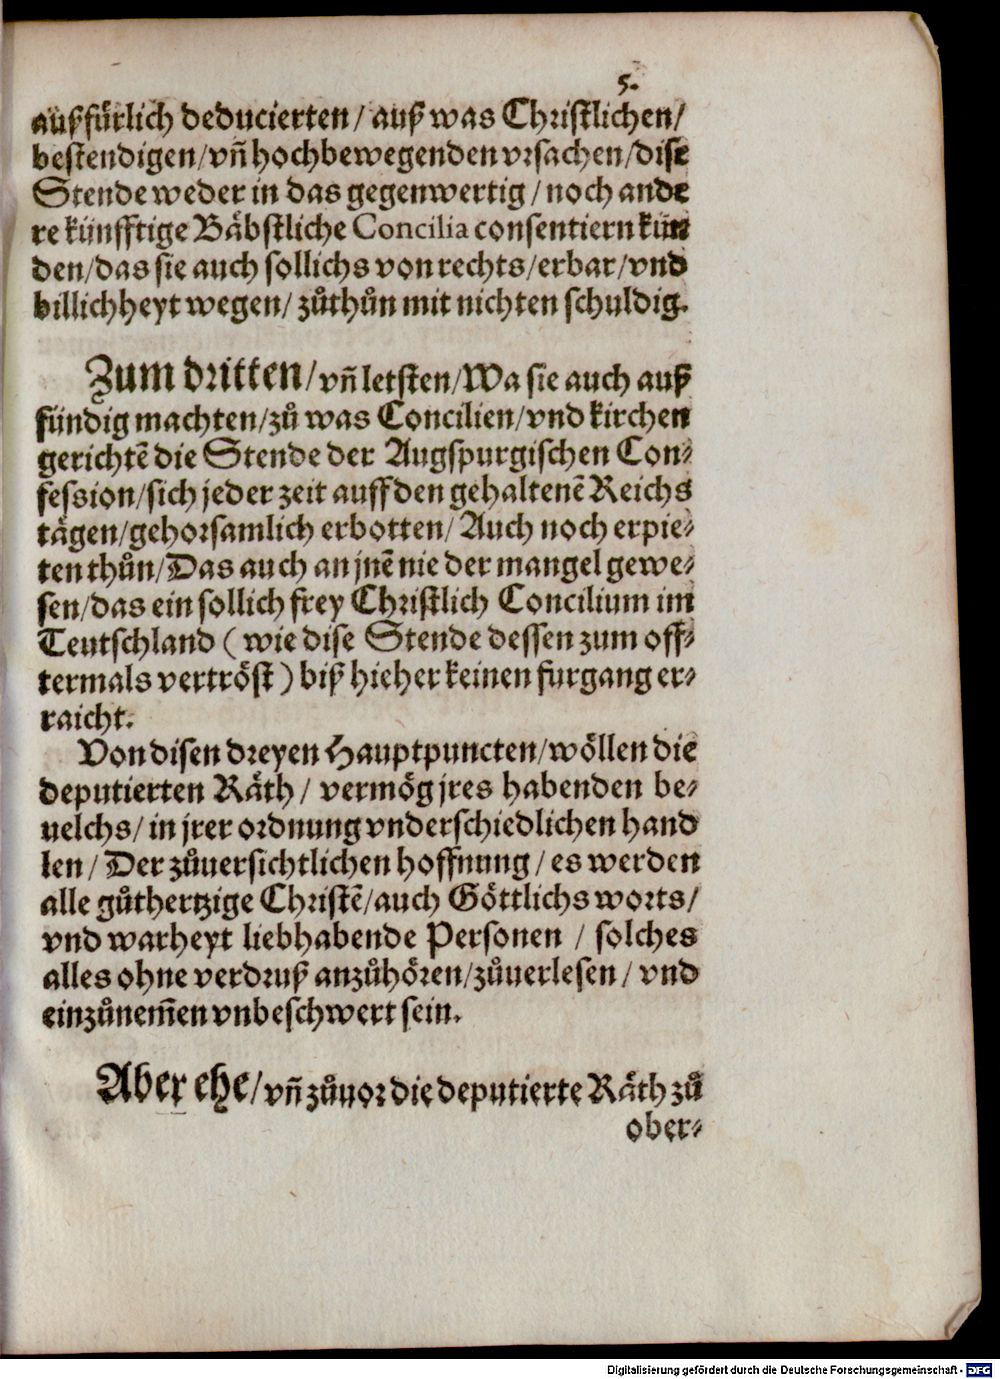 5.
außfürlich deducierten / auß was Christlichen /
bestendigen / vñ hochbewegenden vrsachen / dise
Stende weder in das gegenwertig / noch ande
re künfftige Bäbstliche Concilia consentiern kün
den / das sie auch sollichs von rechts / erbar / vnd
billichheyt wegen / zůthůn mit nichten schuldig.
Zum dritten / vñ letsten / Wa sie auch auß
fündig machten / zů was Concilien / vnd kirchen
gerichtē die Stende der Augspurgischen Con⸗
fession / sich jeder zeit auff den gehaltenē Reichs
tägen / gehorsamlich erbotten / Auch noch erpie⸗
ten thůn / Das auch an jnē nie der mangel gewe⸗
sen / das ein sollich frey Christlich Concilium im
Teutschland ( wie dise Stende dessen zum off⸗
termals vertröst ) biß hieher keinen furgang er⸗
raicht.
Von disen dreyen Hauptpuncten / wöllen die
deputierten Räth / vermög jres habenden be⸗
uelchs / in jrer ordnung vnderschiedlichen hand
len / Der zůuersichtlichen hoffnung / es werden
alle gůthertzige Christē / auch Göttlichs worts /
vnd warheyt liebhabende Personen / solches
alles ohne verdruß anzůhören / zůuerlesen / vnd
einzůnem̃en vnbeschwert sein.
Aber ehe / vñ zůuor die deputierte Räth zů
ober⸗
Digitalisierung gefördert durch die Deutsche Forschungsgemeinschaft - DFG